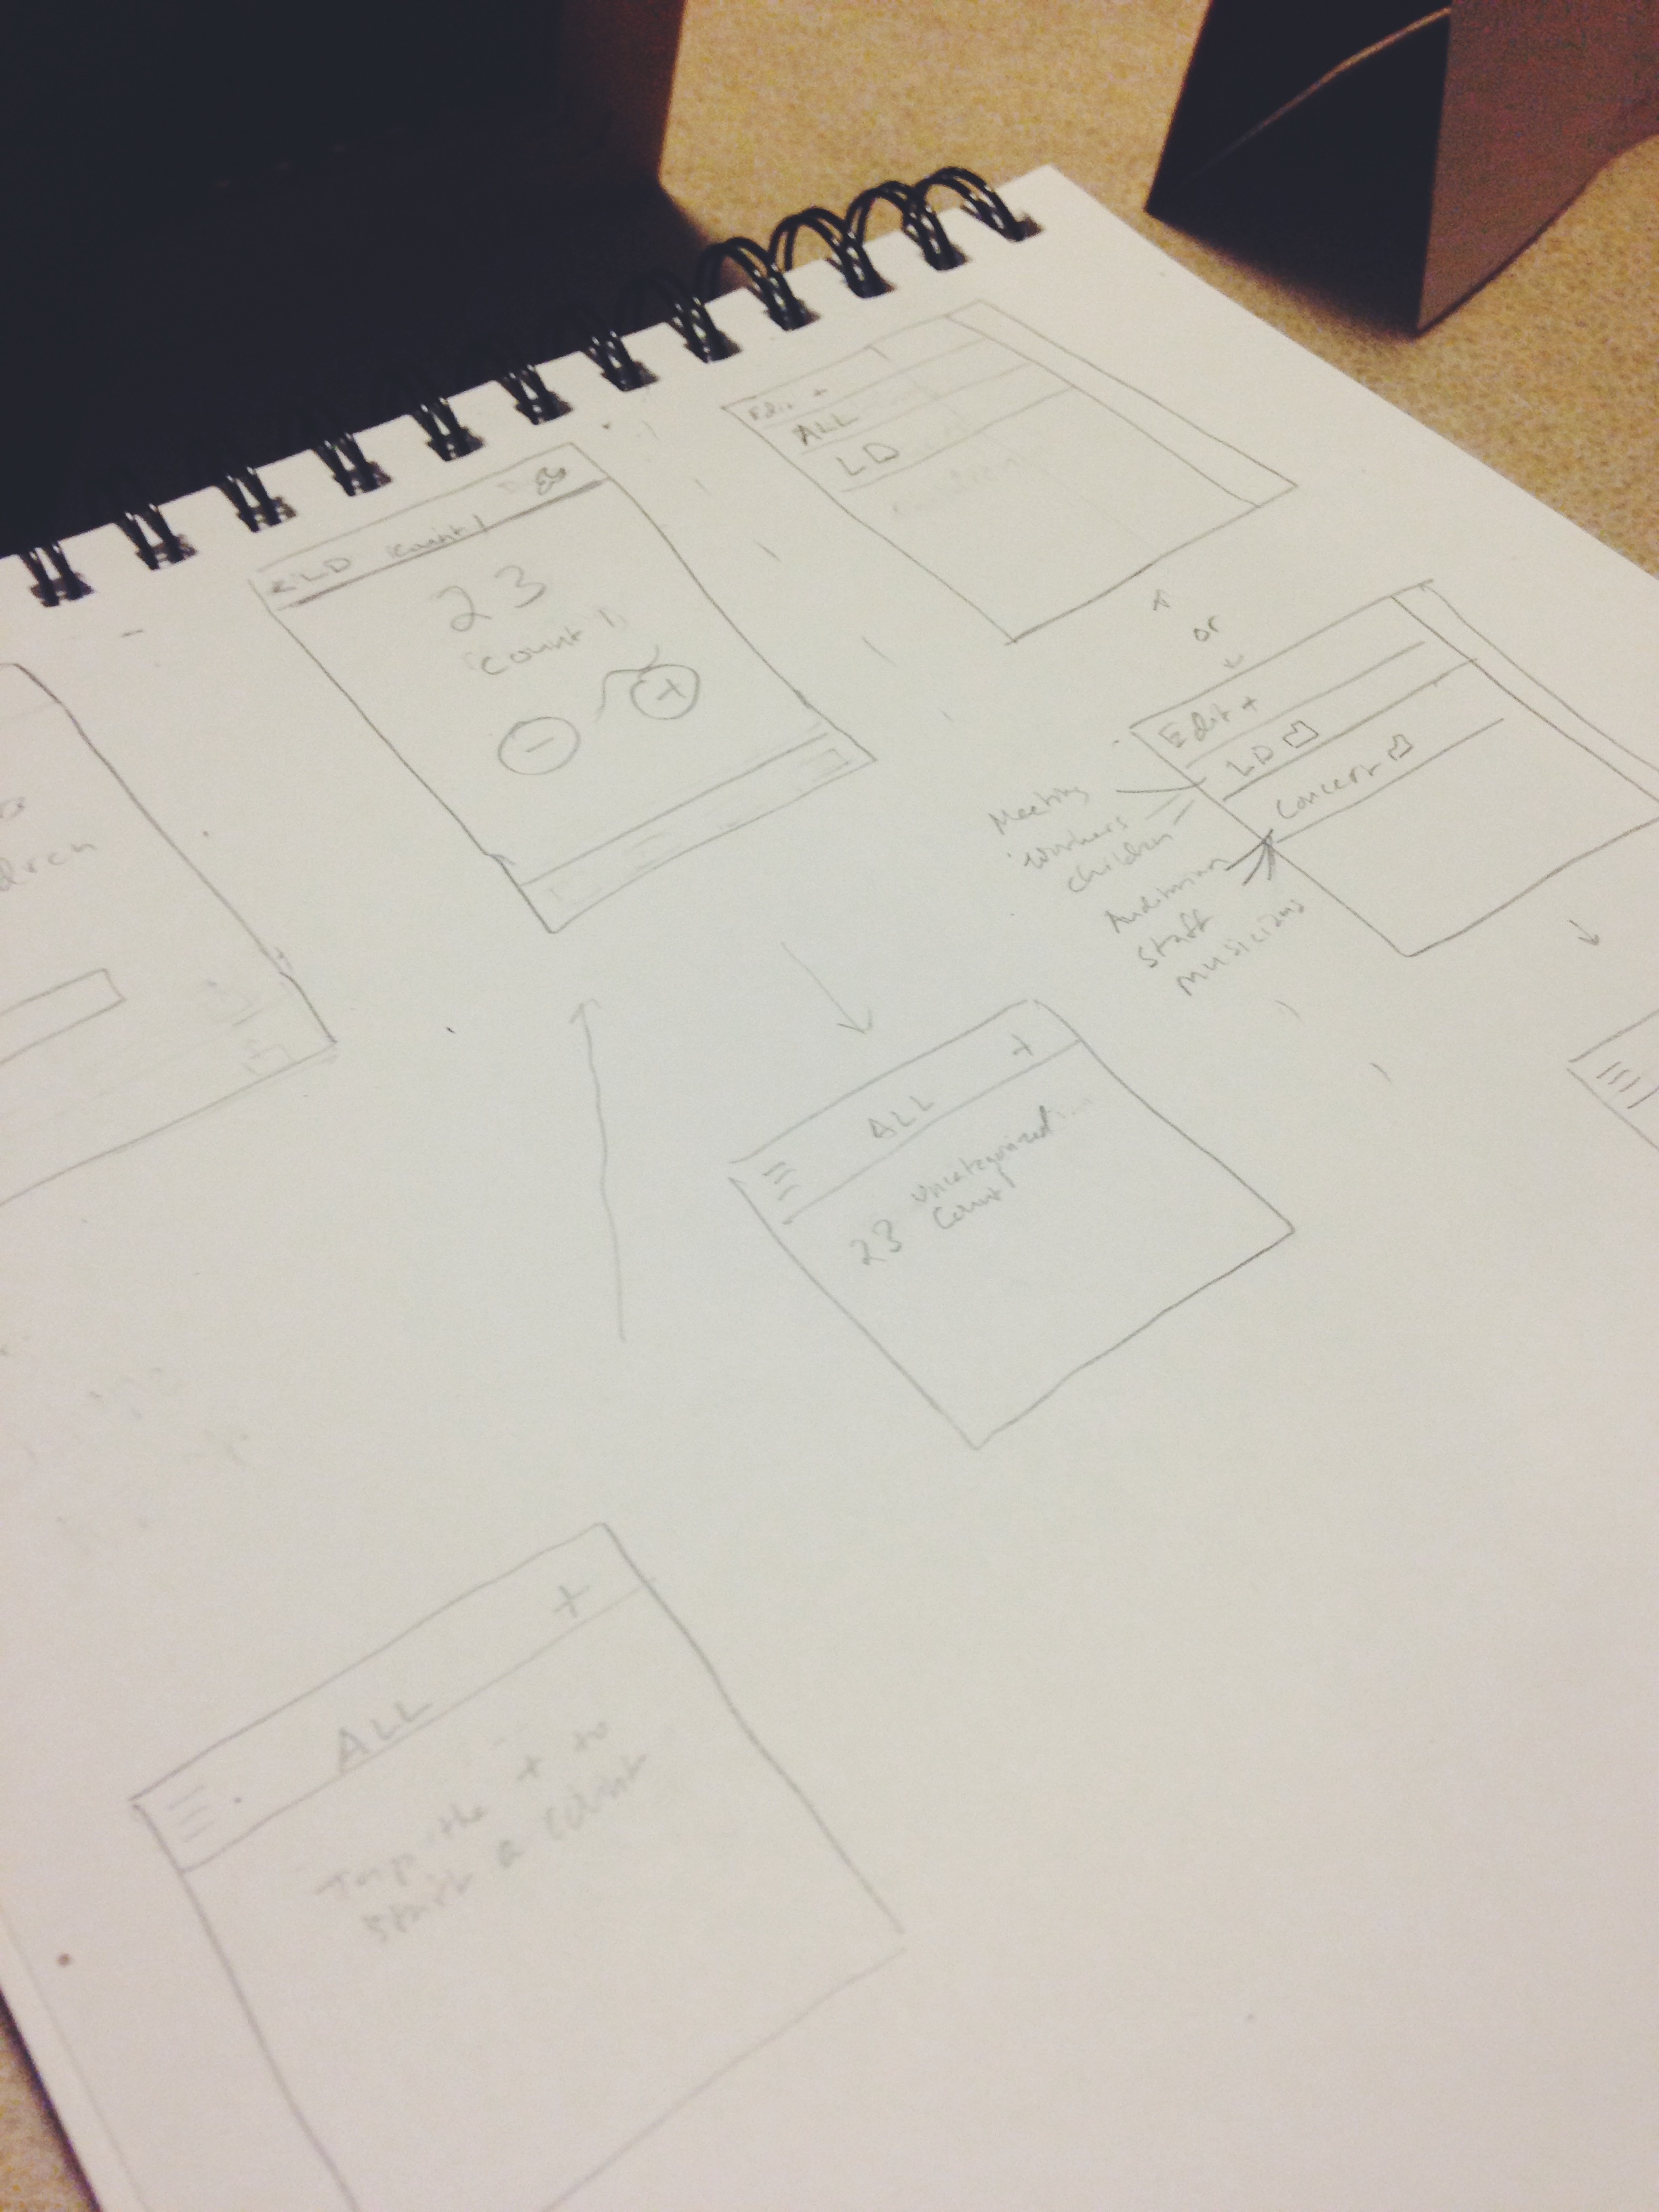 Edit +
ALL
LD
< LD Count 1
23
Count 1
−
+
or
Edit +
LD
Concert
Meeting
Workers
Children
Auditorium
Staff
Musicians
dren
ALL +
23 Uncategorized
Count 1
ALL +
Tap the + to
start a count